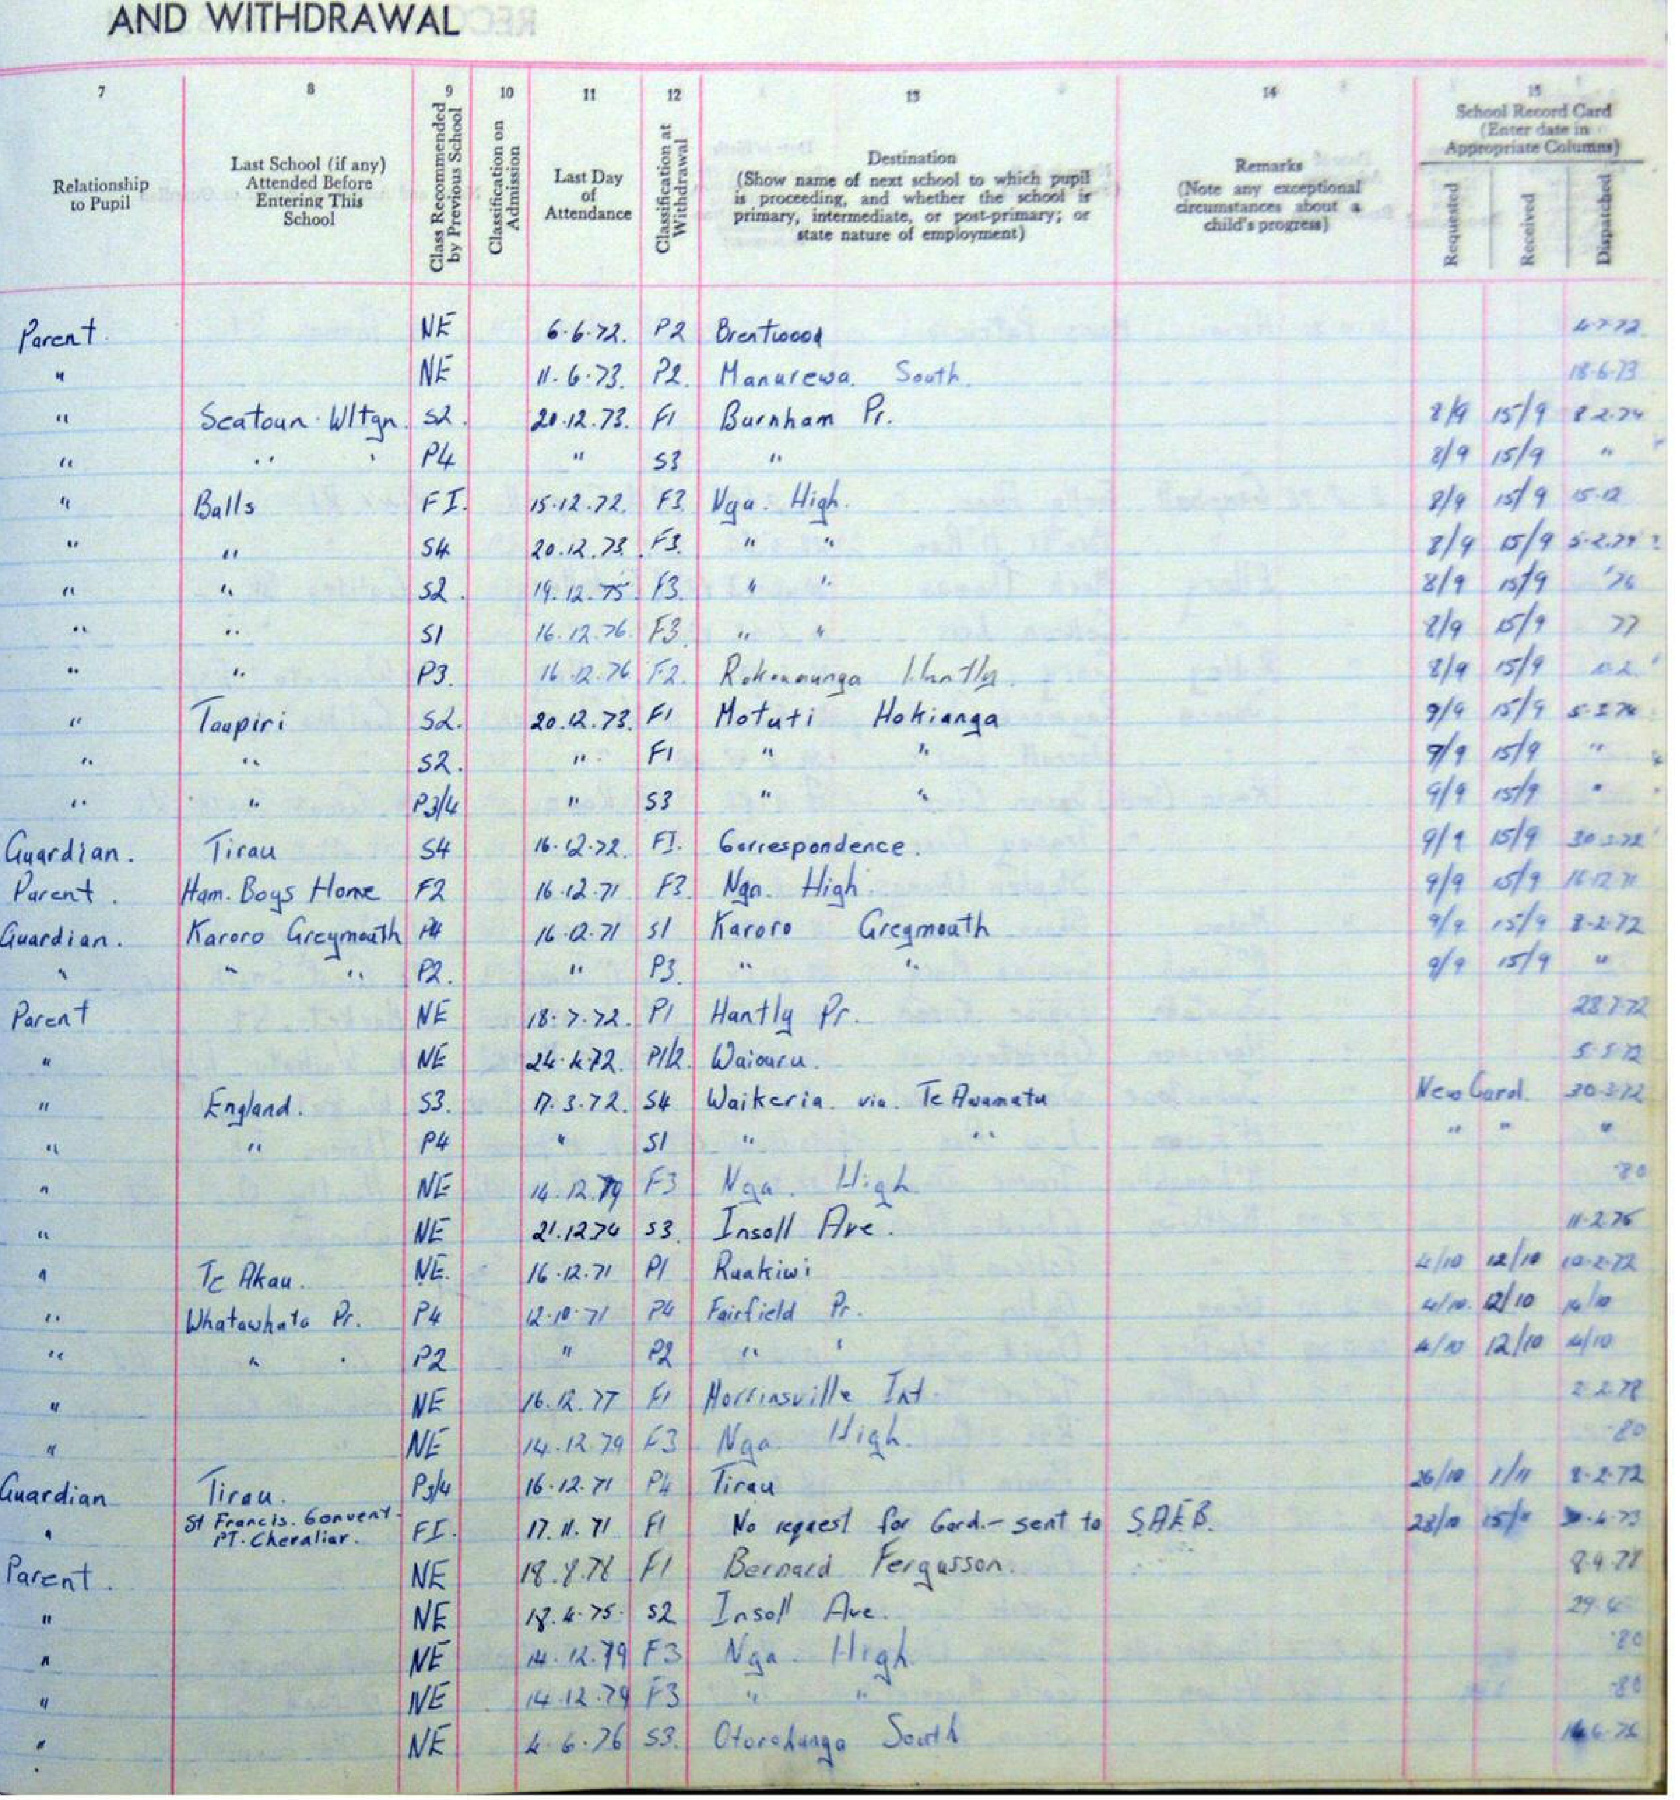 AND WITHDRAWAL
7 8 9 10 11 12 13 14 15
Relationship to Pupil
Last School (if any) Attended Before Entering This School
Class Recommended by Previous School
Classification on Admission
Last Day of Attendance
Classification at Withdrawal
Destination (Show name of next school to which pupil is proceeding, and whether the school is primary, intermediate, or post-primary; or state nature of employment)
Remarks (Note any exceptional circumstances about a child's progress)
School Record Card (Enter date in Appropriate Columns)
Requested Received Dispatched
Parent NE 6.6.72. P2 Brentwood 4.7.72
" NE 11.6.73. P2. Manurewa South 18.6.73
" Seatoun Wltgn. S2. 20.12.73. F1 Burnham Pr. 8/9 15/9 8.2.74
" " " P4 " S3 " 8/9 15/9 "
" Balls FI. 15.12.72. F3 Nga. High. 8/9 15/9 15.12
" " S4 20.12.73. F3. " " 8/9 15/9 5.2.74
" " S2. 19.12.75. F3. " " 8/9 15/9 '76
" " S1 16.12.76. F3. " " 8/9 15/9 77
" " P3. 16.12.76 F2. Huntly. 8/9 15/9
" Taupiri S2. 20.12.73. F1 Motuti Hokianga 9/9 15/9
" " S2. " F1 " " 9/9 15/9 "
" " P3/4 " S3 " " 9/9 15/9 "
Guardian. Tirau S4 16.12.72. F1. Correspondence. 9/9 15/9
Parent. Ham. Boys Home F2 16.12.71 F3 Nga. High 9/9 15/9 16.12.71
Guardian. Karoro Greymouth P4 16.12.71 S1 Karoro Greymouth 9/9 15/9 8.2.72
" " " P2. " P3. " " 9/9 15/9 "
Parent NE 18.7.72. P1 Huntly Pr. 28.7.72
" NE 24.4.72. P1/2. Waiouru. 5.5.72
" England. S3. 17.3.72. S4 Waikeria via. Te Awamutu New Card. 30.3.72
" " P4 " S1 " " " " "
" NE 14.12.79 F3 Nga. High 80
" NE 21.12.74 S3. Insoll Ave. 11.2.75
" Te Akau. NE. 16.12.71 P1 Ruakiwi 4/10 12/10 10.2.72
" Whatawhata Pr. P4 12.10.71 P4 Fairfield Pr. 4/10. 12/10 14/10
" " " P2 " P2 " " 4/10 12/10 14/10
" NE 16.12.77 F1 Morrinsville Int. 2.2.78
" NE 14.12.79 F3 Nga. High. 80
Guardian Tirau. P3/4 16.12.71 P4 Tirau 26/10 1/11 8.2.72
" St Francis. Convent. PT. Chevaliar. FI. 17.11.71 F1 No request for Card. - sent to S.A.E.B. 28/10 15/11
Parent. NE 18.8.78 F1 Bernard Fergusson. 8.9.78
" NE 18.4.75. S2 Insoll Ave. 29.4
" NE 14.12.79 F3 Nga. High 80
" NE 14.12.79 F3 " " 80
" NE 4.6.76 S3. Otorohanga South